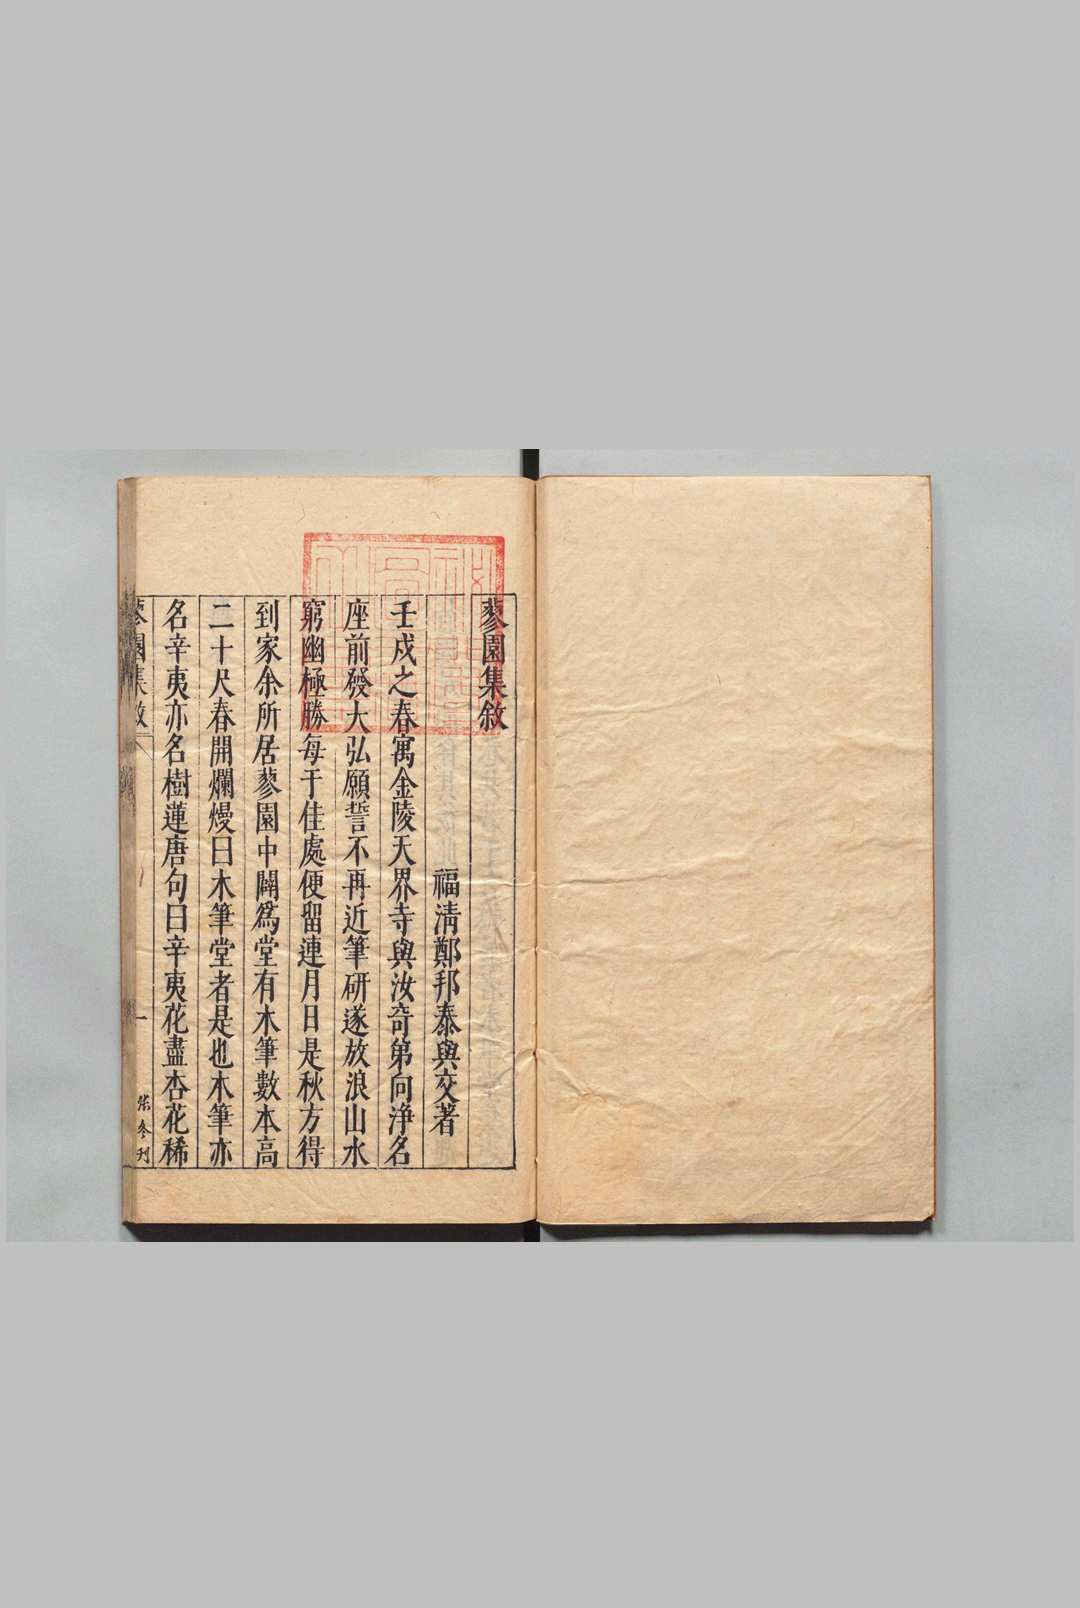 蓼園集敘
福清鄭邦泰與交著
壬戍之春寓金陵天界寺與汝奇第向淨名
座前發大弘願誓不再近筆研遂放浪山水
窮幽極勝每于佳處便留連月日是秋方得
到家余所居蓼園中闢爲堂有木筆數本高
二十尺春開爛熳曰木筆堂者是也木筆亦
名辛夷亦名樹蓮唐句曰辛夷花盡杏花稀
蓼園集敘
一